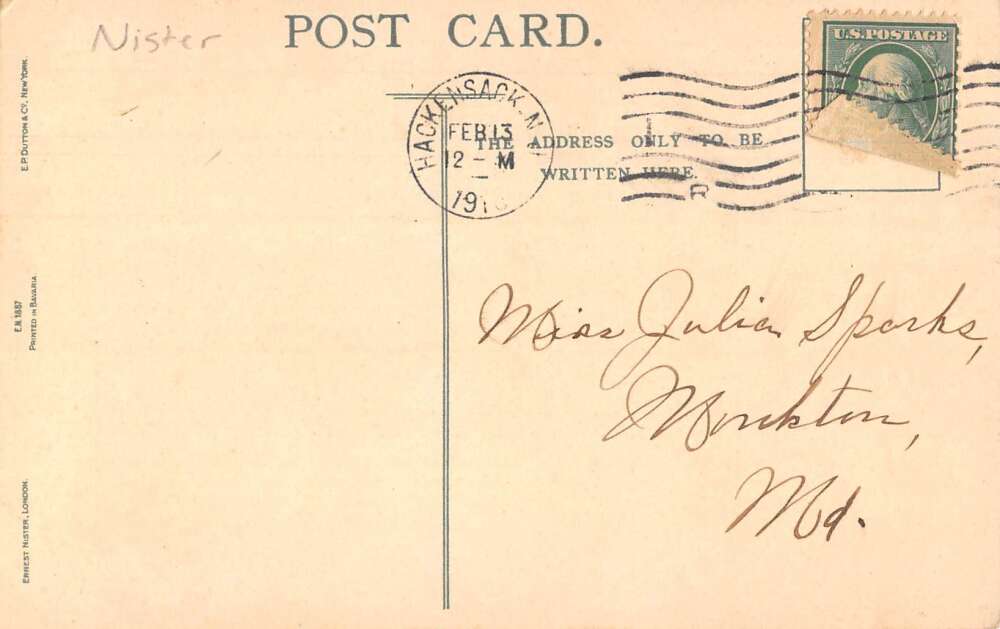 Nister
POST CARD.
U.S. POSTAGE
HACKENSACK, N.
FEB 13
12 - M
191
THE ADDRESS ONLY TO BE
WRITTEN HERE.
R
Miss Julia Sparks,
Monkton,
Md.
E.P. DUTTON & CO. NEW YORK.
E.N. 1887
PRINTED IN BAVARIA
ERNEST NISTER, LONDON.